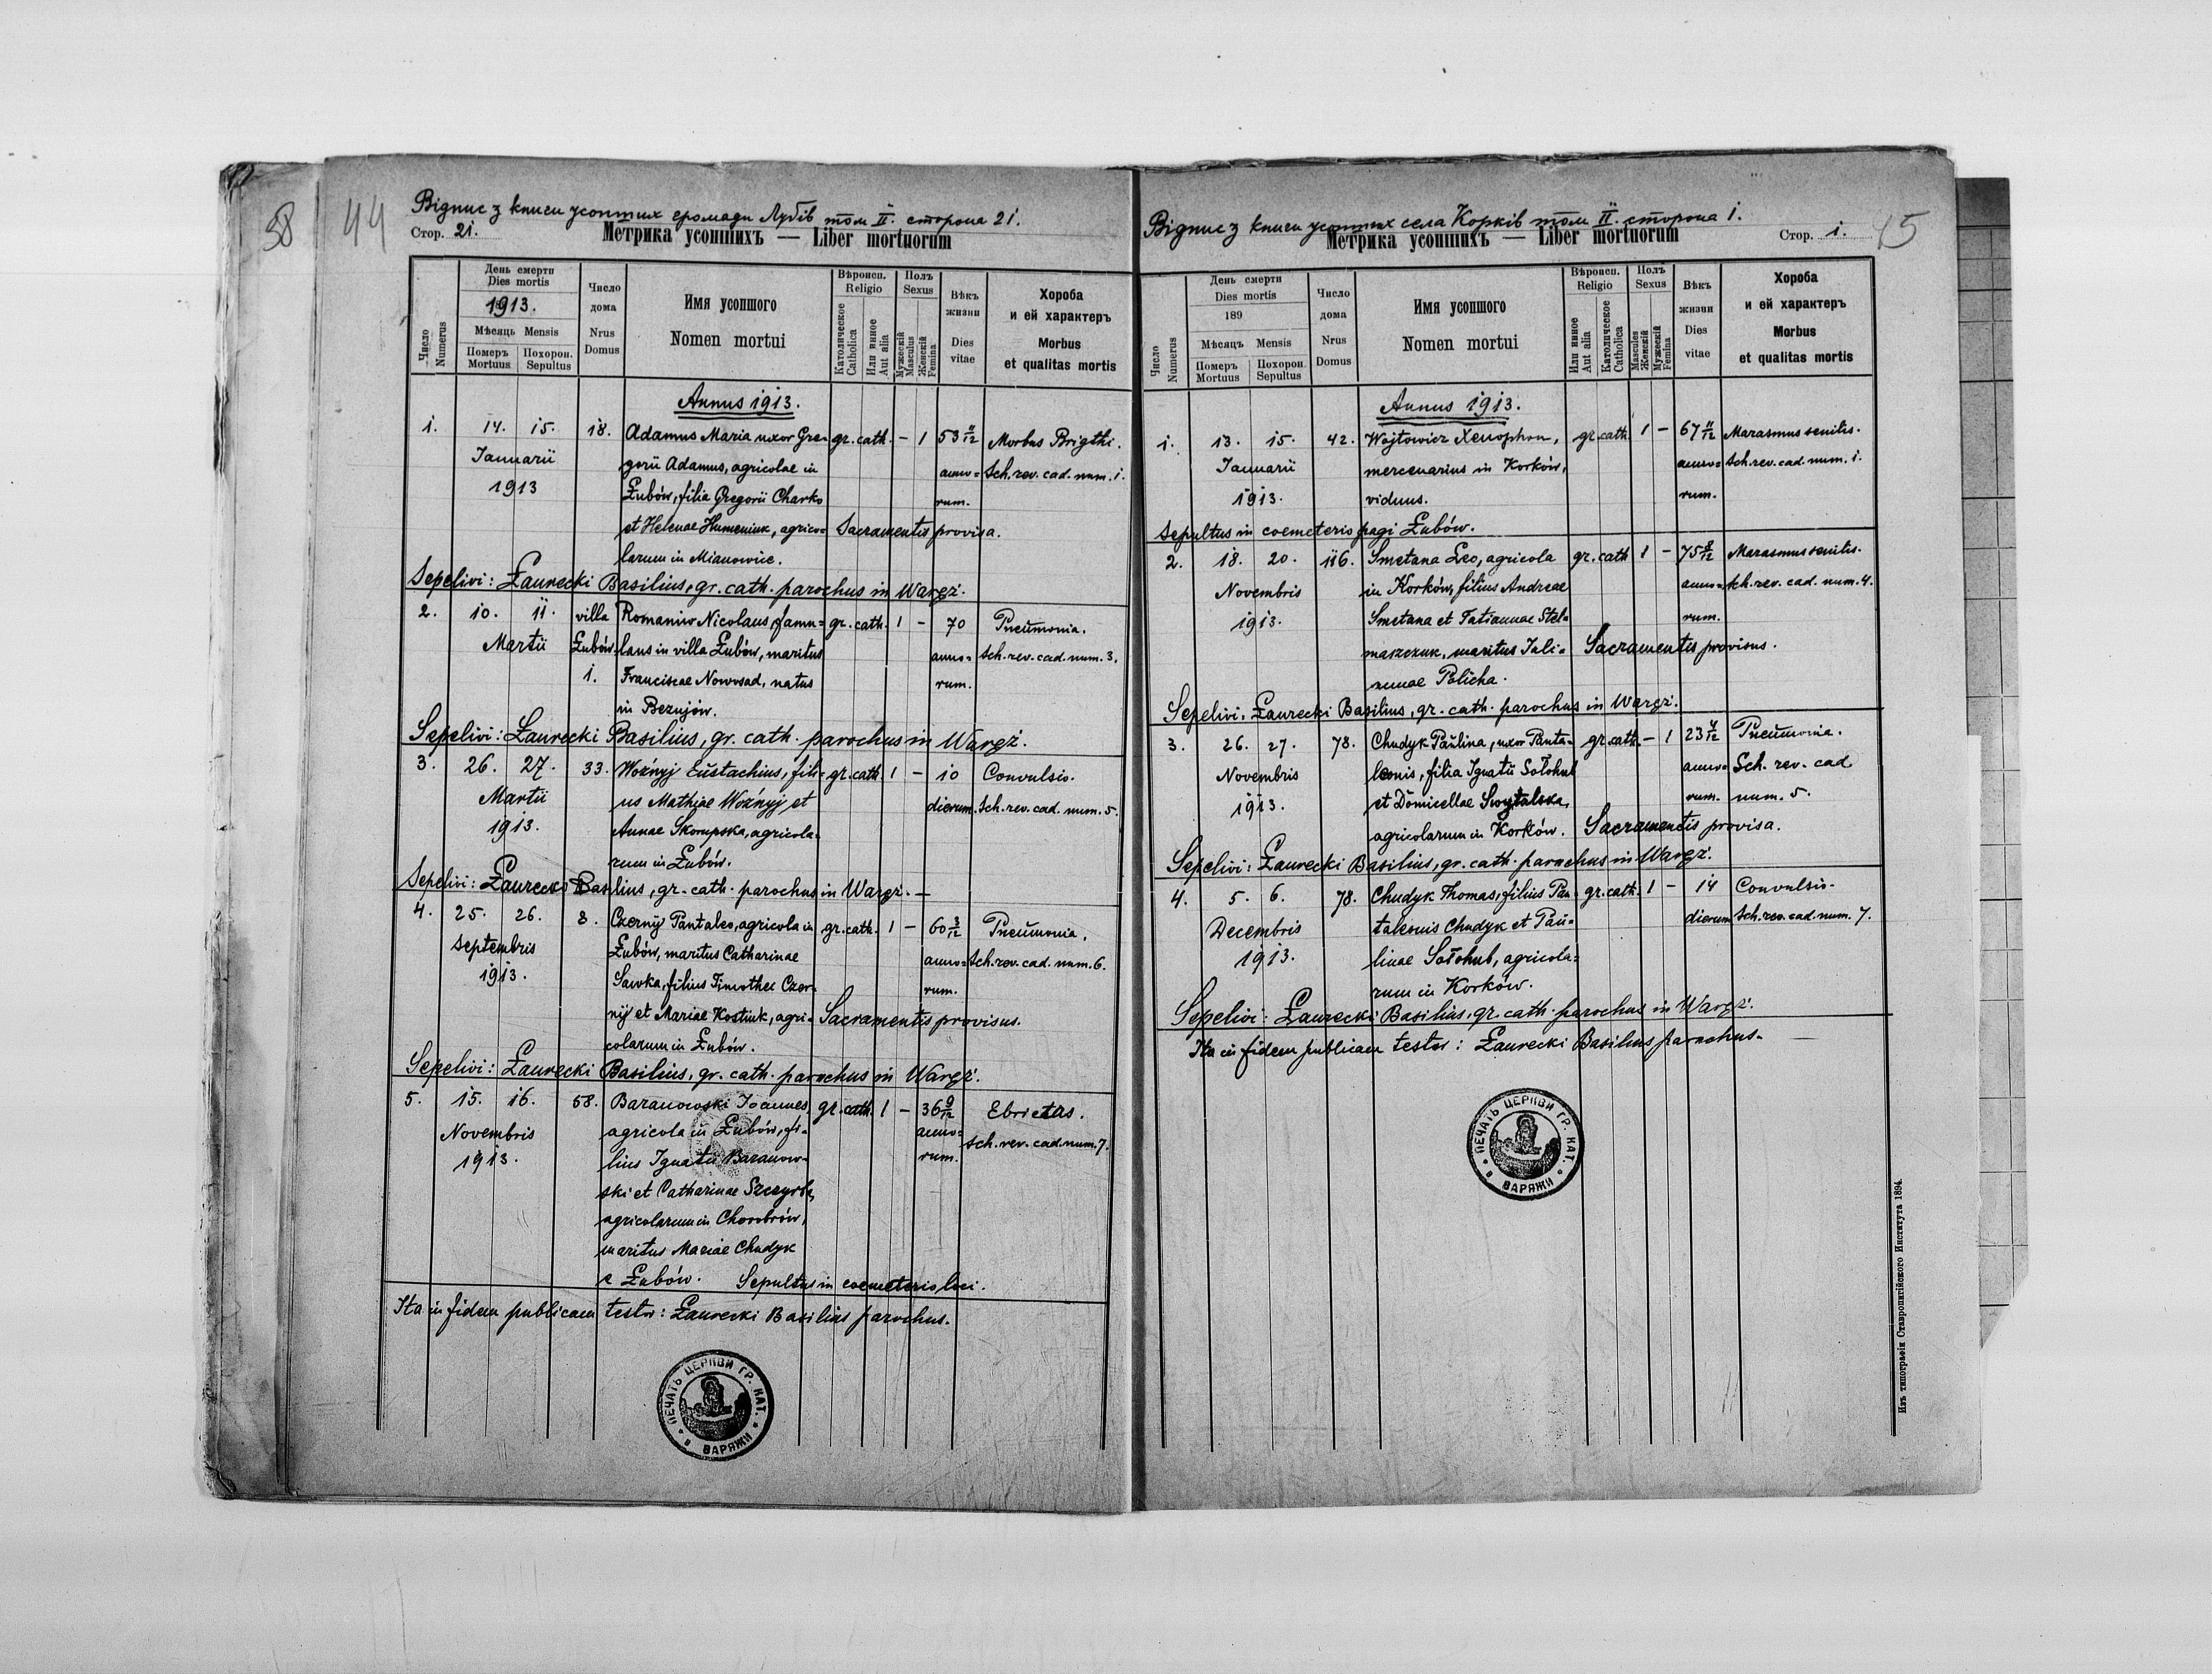 58
44
Відпис з книги усопших громади Лубів том ІІ. сторона 21.
Стор. 21.
Метрика усопшихъ — Liber mortuorum
Число Numerus
День смерти
Dies mortis
1913.
Мѣсяць Mensis
Померъ Mortuus
Похорон. Sepultus
Число дома
Nrus Domus
Имя усопшого
Nomen mortui
Вѣроисп.
Religio
Католическое Catholica
Или инное Aut alia
Полъ
Sexus
Мужескій Masculus
Женскій Femina
Вѣкъ жизни
Dies vitae
Хороба
и ей характеръ
Morbus
et qualitas mortis
Annus 1913.
1. 14. 15. 18. Adamus Maria uxor Gre= gr. cath. – 1 53 11/12 Morbus Brigthi.
Januarii gorii Adamus, agricolae in anno= Sch. rev. cad. num. 1.
1913 Łubów, filia Gregorii Charko rum.
et Helenae Humeniuk, agrico= Sacramentis provisa.
larum in Mianowice.
Sepelivi: Łaurecki Basilius, gr. cath. parochus in Waręż.
2. 10. 11. villa Romaniw Nicolaus, famu= gr. cath. 1 – 70 Pneumonia.
Martii Łubów. laus in villa Łubów, maritus anno= Sch. rev. cad. num. 3.
1. Franciscae Nowosad, natus rum.
in Bezujów.
Sepelivi: Łaurecki Basilius, gr. cath. parochus in Waręż.
3. 26. 27. 33. Woźnyj Eustachius, fili= gr. cath. 1 – 10 Convulsio.
Martii us Mathiae Woźnyj et dierum. Sch. rev. cad. num. 5.
1913. Annae Skorupska, agricola=
rum in Łubów.
Sepelivi: Łaurecki Basilius, gr. cath. parochus in Waręż. –
4. 25. 26. 8. Czernÿ Pantaleo, agricola in gr. cath. 1 – 60 3/12 Pneumonia.
Septembris Łubów, maritus Catharinae anno= Sch. rev. cad. num. 6.
1913. Sawka, filius Timothei Czer= rum.
nÿ et Mariae Kostiuk, agri= Sacramentis provisus.
colarum in Łubów.
Sepelivi: Łaurecki Basilius, gr. cath. parochus in Waręż.
5. 15. 16. 58. Baranowski Joannes, gr. cath. 1 – 36 9/12 Ebrietas.
Novembris agricola in Łubów, fi= anno= Sch. rev. cad. num. 7.
1913. lius Ignatii Baranow= rum.
ski et Catharinae Szczyrba,
agricolarum in Chorobrów,
maritus Mariae Chudyk
e Łubów. Sepultus in coemeterio loci.
Ita in fidem publicam testor: Łaurecki Basilius parochus.
ПЕЧАТЬ ЦЕРКВИ ГР. КАТ. * в ВАРЯЖИ *
Відпис з книги усопших села Корків том ІІ. сторона 1.
Метрика усопшихъ — Liber mortuorum
Стор. 1.
45
Число Numerus
День смерти
Dies mortis
189
Мѣсяць Mensis
Померъ Mortuus
Похорон. Sepultus
Число дома
Nrus Domus
Имя усопшого
Nomen mortui
Вѣроисп.
Religio
Или инное Aut alia
Католическое Catholica
Полъ
Sexus
Masculus Женскій
Мужескій Femina
Вѣкъ жизни
Dies vitae
Хороба
и ей характеръ
Morbus
et qualitas mortis
Annus 1913.
1. 13. 15. 42. Wojtowicz Xenophon, gr. cath. 1 – 67 11/12 Marasmus senilis.
Januarii mercenarius in Korków, anno= Sch. rev. cad. num. 1.
1913. viduus. rum.
Sepultus in coemeterio pagi Łubów.
2. 18. 20. 116. Smetana Leo, agricola gr. cath 1 – 75 8/12 Marasmus senilis.
Novembris in Korków, filius Andreae anno= Sch. rev. cad. num. 4.
1913. Smetana et Tatiannae Stel= rum.
maszczuk, maritus Juli= Sacramentis provisus.
annae Policha.
Sepelivi: Łaurecki Basilius, gr. cath. parochus in Waręż.
3. 26. 27. 78. Chudyk Paulina, uxor Panta= gr. cath. – 1 23 4/12 Pneumonia.
Novembris leonis, filia Ignatii Sołohub anno= Sch. rev. cad
1913. et Domicellae Swytalska, rum. num. 5.
agricolarum in Korków. Sacramentis provisa.
Sepelivi: Łaurecki Basilius, gr. cath. parochus in Waręż.
4. 5. 6. 78. Chudyk Thomas, filius Pan= gr. cath. 1 – 14 Convulsio.
Decembris taleonis Chudyk et Pau= dierum Sch. rev. cad. num. 7.
1913. linae Sołohub, agricola=
rum in Korków.
Sepelivi: Łaurecki Basilius, gr. cath. parochus in Waręż.
Ita in fidem publicam testor: Łaurecki Basilius parochus. –
ПЕЧАТЬ ЦЕРКВИ ГР. КАТ. * в ВАРЯЖИ *
Изъ типографіи Ставропигійского Института 1894.